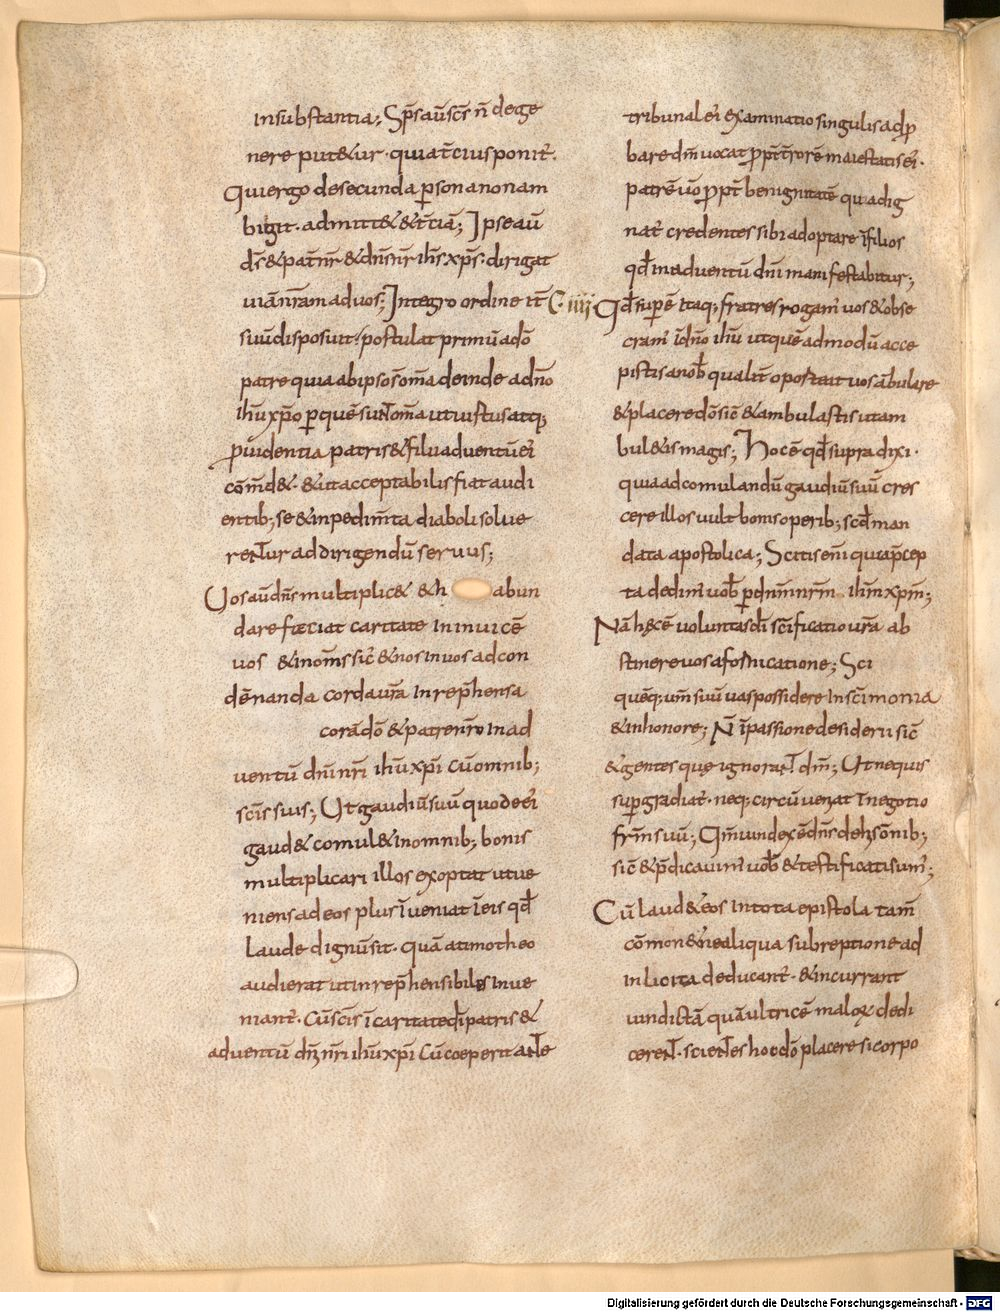 insubstantia; Sp̄s aū sc̄s n̄ dege
nere put&ur · quia t̄cius ponit̄.
Qui ergo desecunda ꝑsona non am
bigit · admitt& & t̄ciā; Ipse aū
d̄s & pat̄ nr̄ & dn̄s nr̄ ih̄s xp̄s · dirigat
uiā nr̄am aduos; Integro ordine it̄
suū disposuit · postulat primū a dō
patre quia ab ipso s̄ om̄a deinde a dn̄o
ih̄u xp̄o ꝑ quē sunt om̄a ut iustus atq;
ꝓuidentia patris & filii aduentū ei
cōm̄d& · & ita acceptabilis fiat audi
entib; se & inpedim̄ta diaboli solue
rentur ad dirigendū seruus;
Uos aū dn̄s multiplic& & h abun
dare fæciat caritate in inuicē
uos & in om̄s sic̄ & nos in uos ad con
dēnanda corda ur̄a in rep̄hensa
corā dō & patre nr̄o in ad
uentū dn̄i nr̄i ih̄u xp̄i cū omnib;
sc̄is suis; Ut gaudiū suū quo de ei
gaud& comul& in omnib; bonis
multiplicari illos exoptat ut ue
niens ad eos plus īueniat ī eis qd̄
laude dignū sit · quā a timotheo
audierat ut inrep̄hensibiles inue
niant̄ · Cū sc̄is ī caritate dī patris &
aduentū dn̄i nr̄i ih̄u xp̄i cū coeperit ante
tribunal ei examinatio singulis ad ꝓ
bare dm̄ uocat ꝓpt̄ t̄rorē maiestatis ei ·
patrē ūo ꝓpt̄ benignitatē qua dig
nat̄ credentes sibi adoptare ī filios
qd̄ in aduentū dn̄i manifestabitur;
C · iiii Qd̄ suꝑē itaq; fratres rogam̄ uos & obse
cram̄ ī dn̄o ih̄u ut quē ad modū acce
pistis a nob̄ qualit̄ oporteat uos ābulare
& placere dō sic̄ & ambulastis ut am
bul&is magis; Hoc ē qd̄ supra dixi ·
quia ad comulandū gaudiū suū cres
cere illos uult bonis operib; scd̄ man
data apostolica; Scitis eni quia p̄cep
ta dedim̄ uob̄ ꝑ dn̄m nr̄m ih̄m xp̄m;
Nā hęc ē uoluntas dī sc̄ificatio ur̄a ab
stinere uos a fornicatione; Sci
quēq; ur̄m suū uas possidere in sc̄imonia
& in honore; N̄ ī passione desiderii sic̄
& gentes quę ignorant dm̄; Ut ne quis
suꝑgradiat̄ · neq; circūueniat ī negotio
fr̄m suū; Qm̄ uindex ē dn̄s de his om̄ib;
sic̄ & p̄dicauim̄ uob̄ & testificati sum̄;
Cū laud& eos in tota epistola tam̄
cōmon& ne aliqua subreptione ad
inlicita deducant̄ · & incurrant
uindictā quā ultricē maloꝝ dedi
cerent · scientes hoc dō placere si corpo